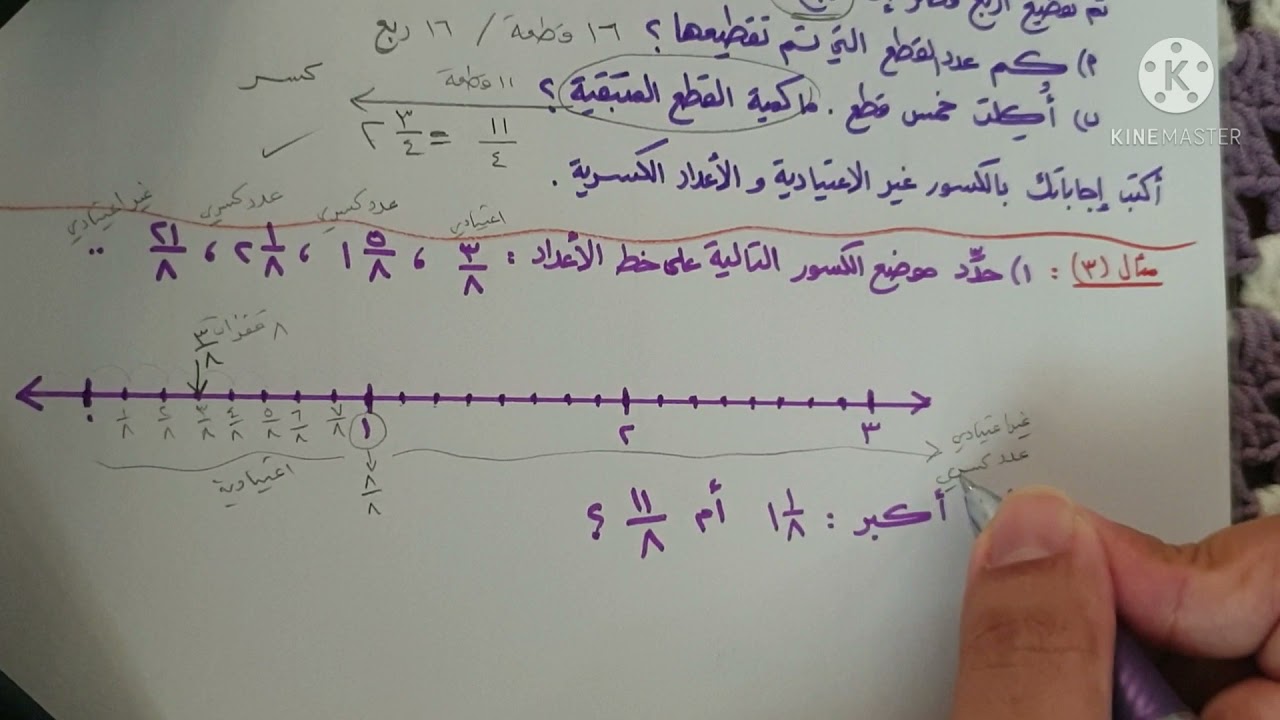 تم تقطيع أربع
٢) كم عدد القطع التي تم تقطيعها ؟ ١٦ قطعة / ١٦ ربع
ب) أُكِلت خمس قطع . ما كمية القطع المتبقية ؟ ١١ قطعة
كسر
١١/٤ = ٢ ٣/٤
أكتب إجاباتك بالكسور غير الاعتيادية و الأعداد الكسرية .
اعتيادي عدد كسري عدد كسري غير اعتيادي
مثال (٣) : ١) حدِّد موضع الكسور التالية على خط الأعداد : ٣/٨ ، ١ ٥/٨ ، ٢ ١/٨ ، ٢١/٨ ..
٨ قفزات
٣/٨
٠ ١/٨ ٢/٨ ٣/٨ ٤/٨ ٥/٨ ٦/٨ ٧/٨ ١ ٢ ٣
اعتيادية
٨/٨
غير اعتيادي
عدد كسري
أكبر : ١ ١/٨ أم ١١/٨ ؟
KINEMASTER